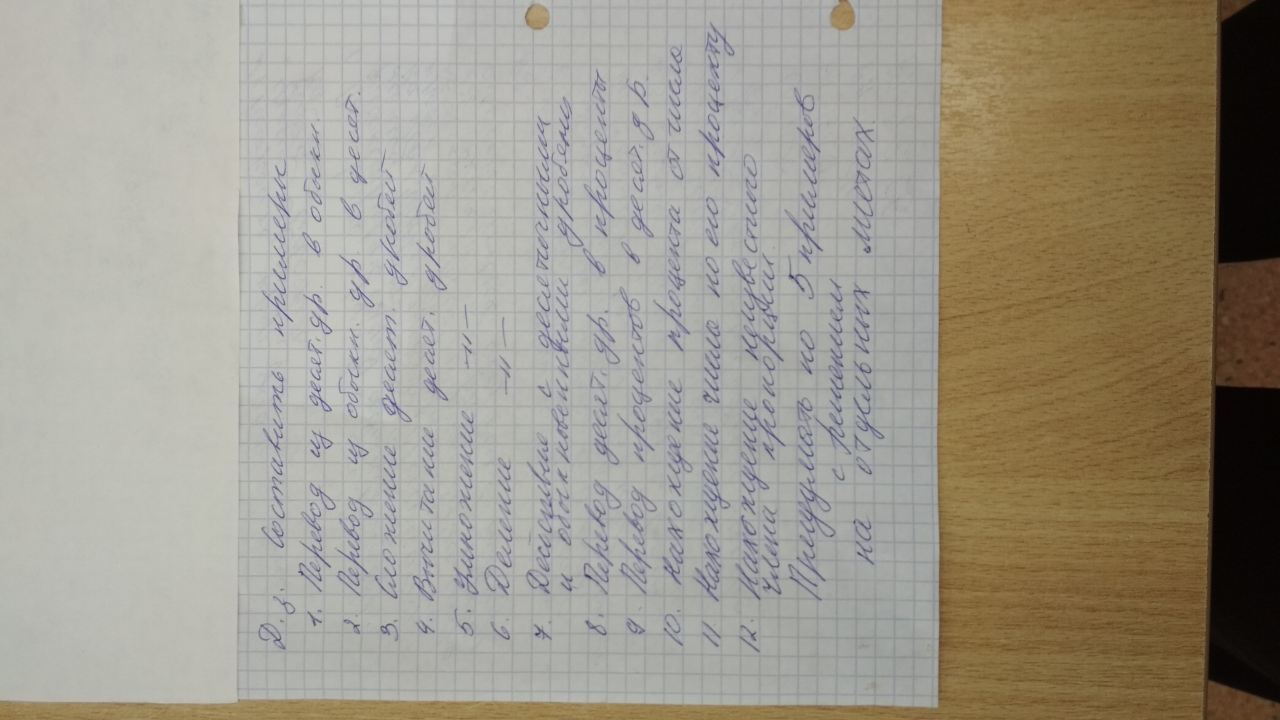 Д.з. Составить примеры
1. Перевод из десят. др. в обыкн.
2. Перевод из обыкн. др в десят.
3. Сложение десят. дробей
4. Вычитание десят. дробей
5. Умножение —"—
6. Деление —"—
7. Действие с десятичными
и обыкновенными дробями
8. Перевод десят. др. в проценты
9 Перевод процентов в десят. др.
10. Нахождение процента от числа
11 Нахождение числа по его проценту
12. Нахождение неизвестного
члена пропорции.
Придумать по 5 примеров
с решением
на отдельных листах